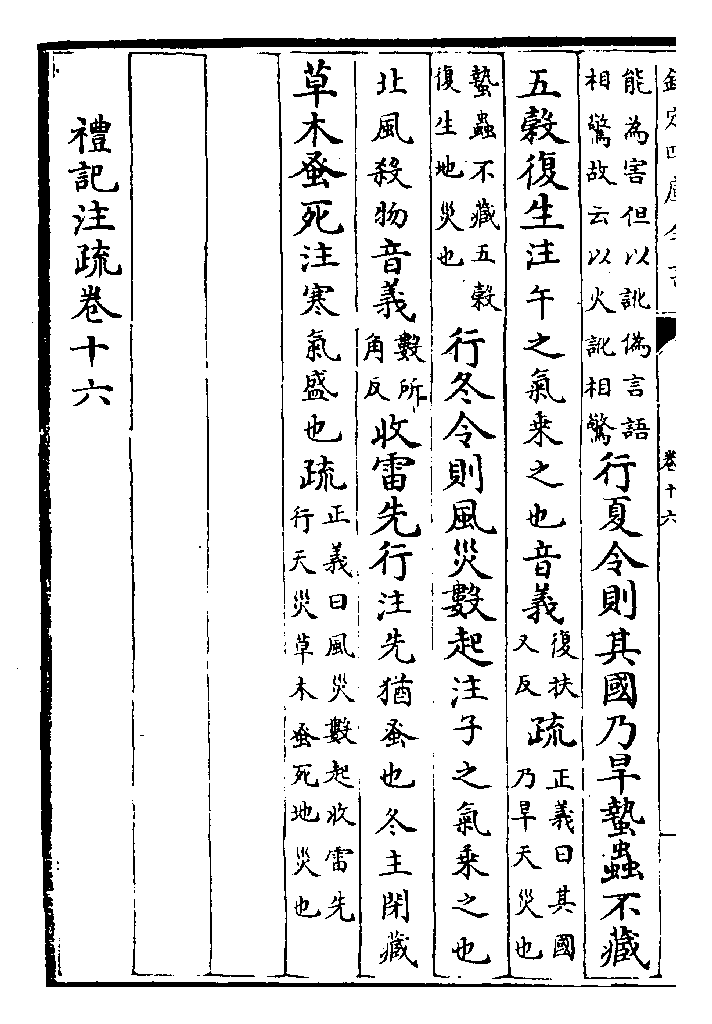 欽定四庫全書 卷十六
能為害但以訛偽言語相驚故云以火訛相驚行夏令則其國乃旱蟄蟲不藏
五穀復生注午之氣乘之也音義復扶又反疏正義曰其國乃旱天災也
蟄蟲不藏五穀復生地災也行冬令則風災數起注子之氣乘之也
北風殺物音義數所角反收雷先行注先猶蚤也冬主閉藏
草木蚤死注寒氣盛也疏正義曰風災數起收雷先行天災草木蚤死地災也
禮記注疏卷十六